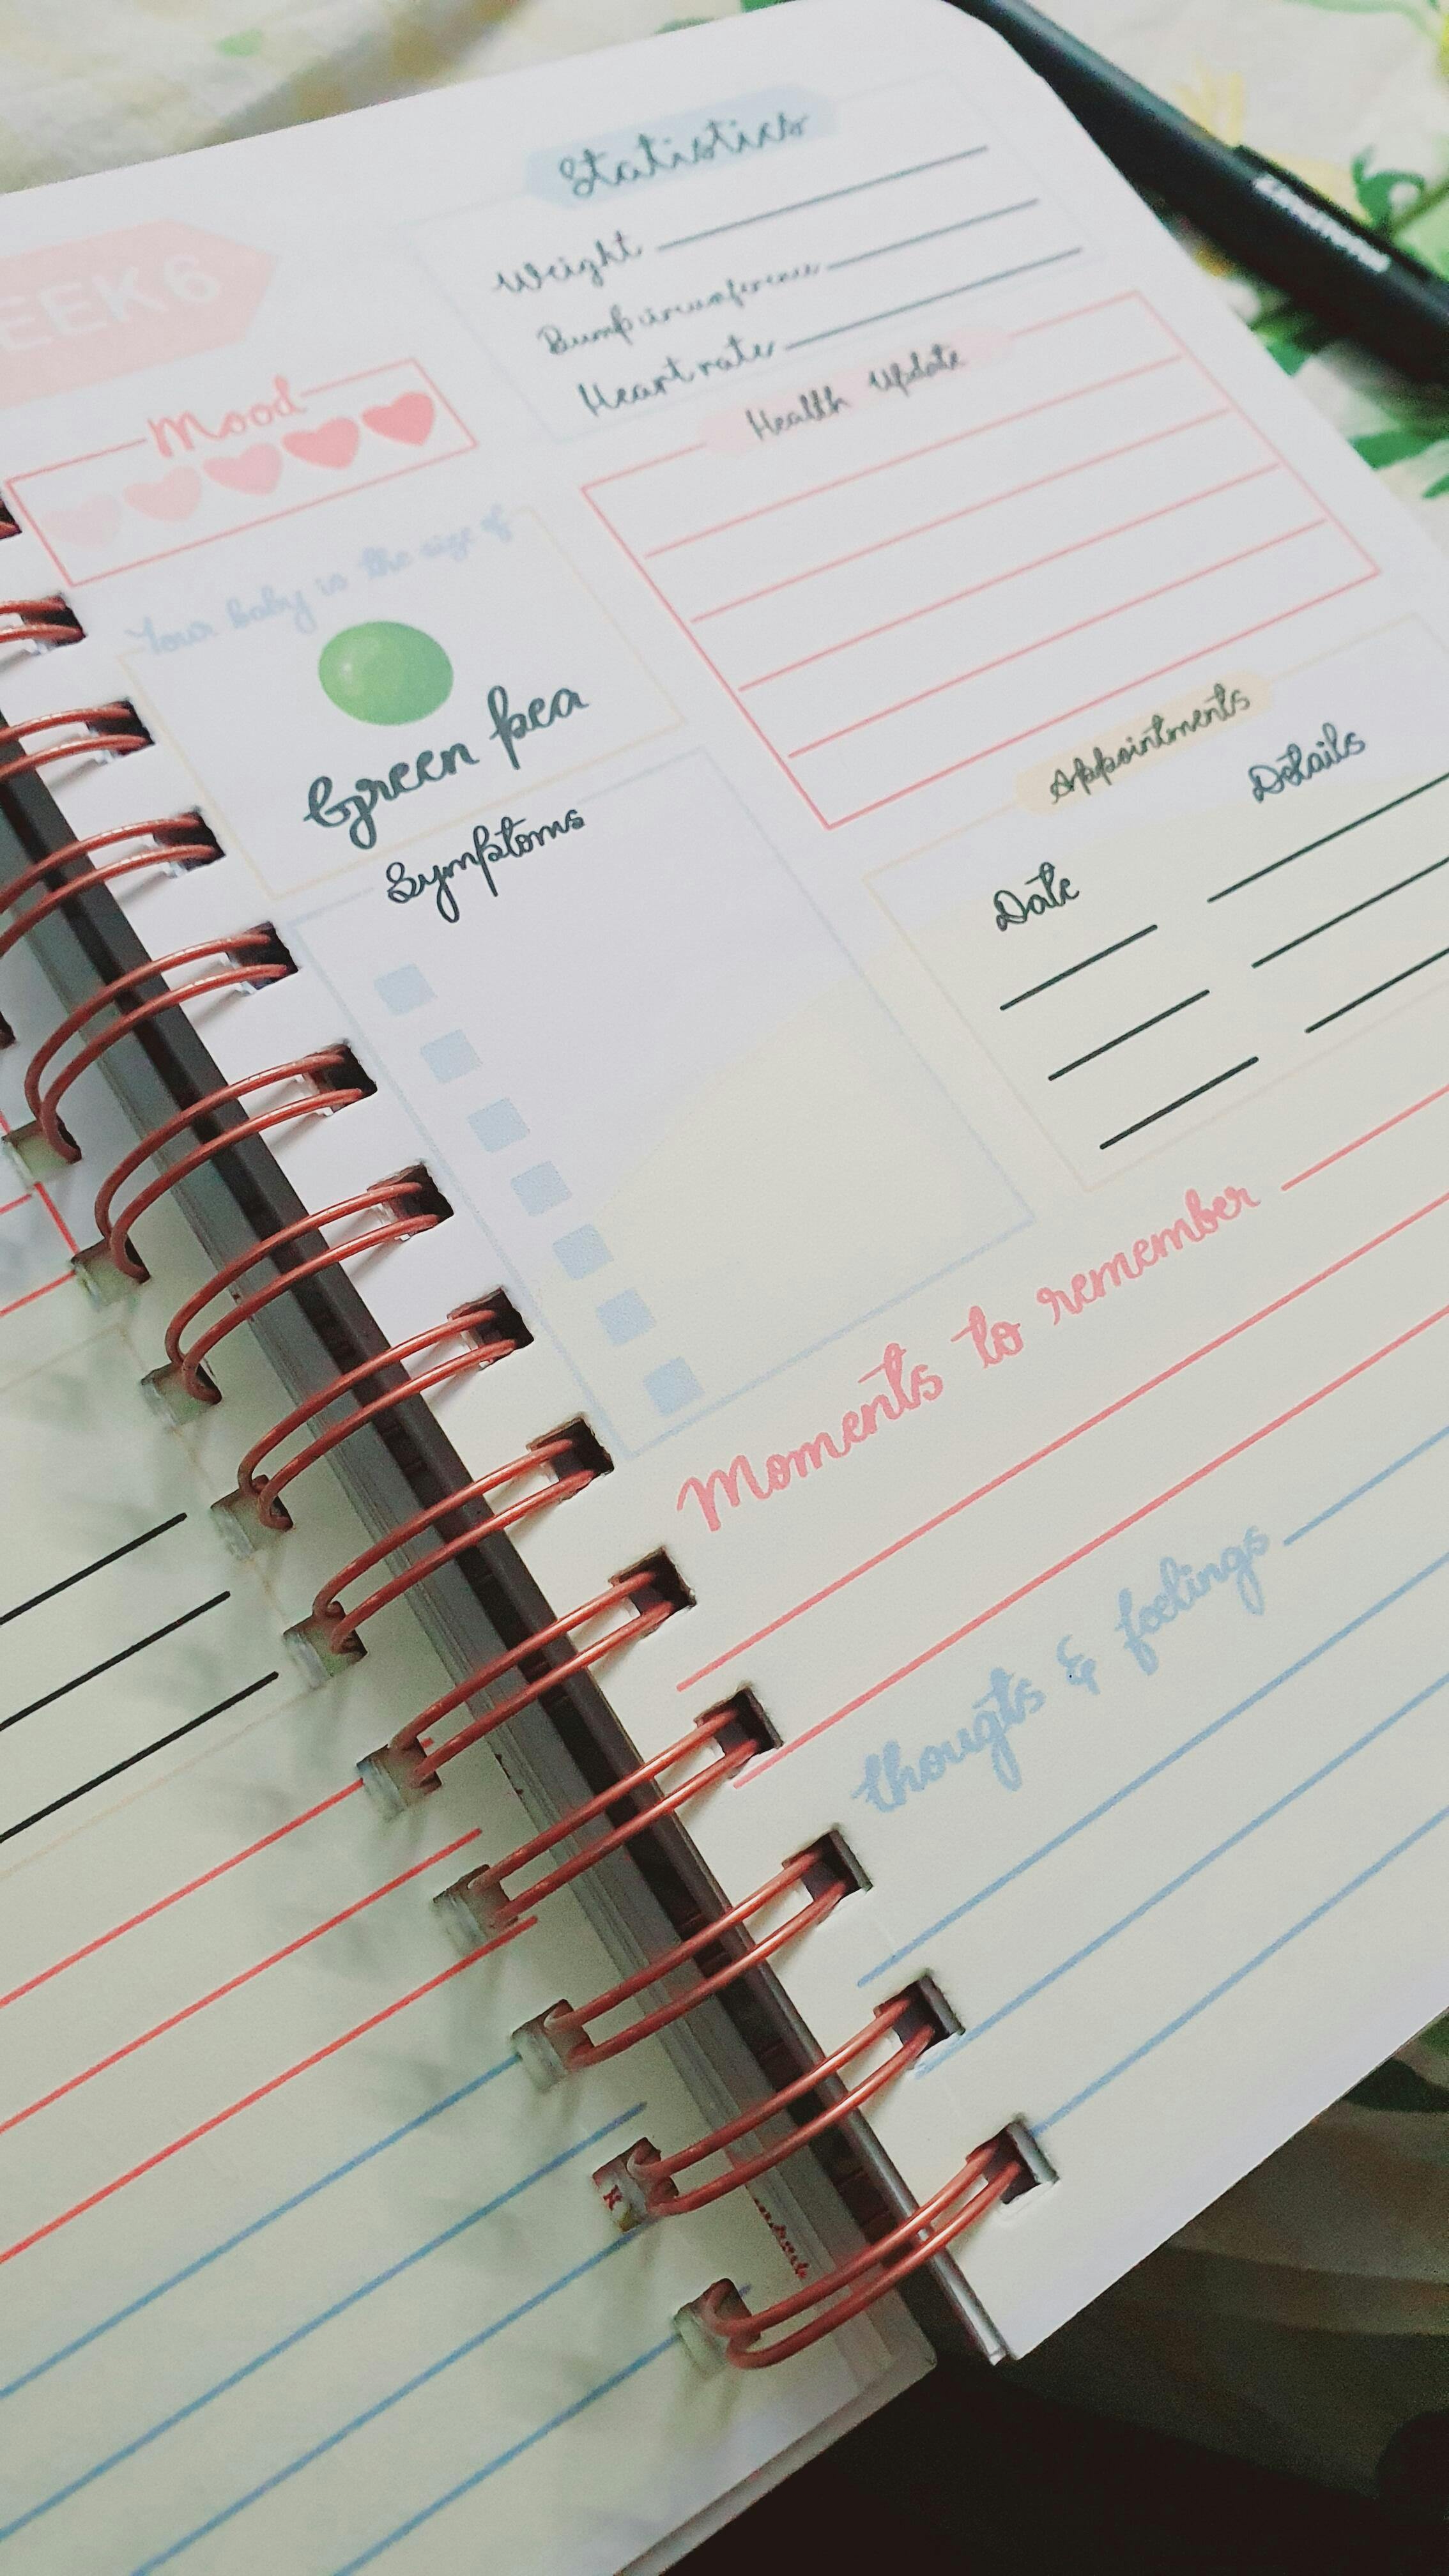 EEK 6
Mood
Your baby is the size of
Green pea
Symptoms
Statistics
Weight
Bump circumference
Heart rate
Health Update
Appointments
Date Details
Moments to remember
thougts & feelings